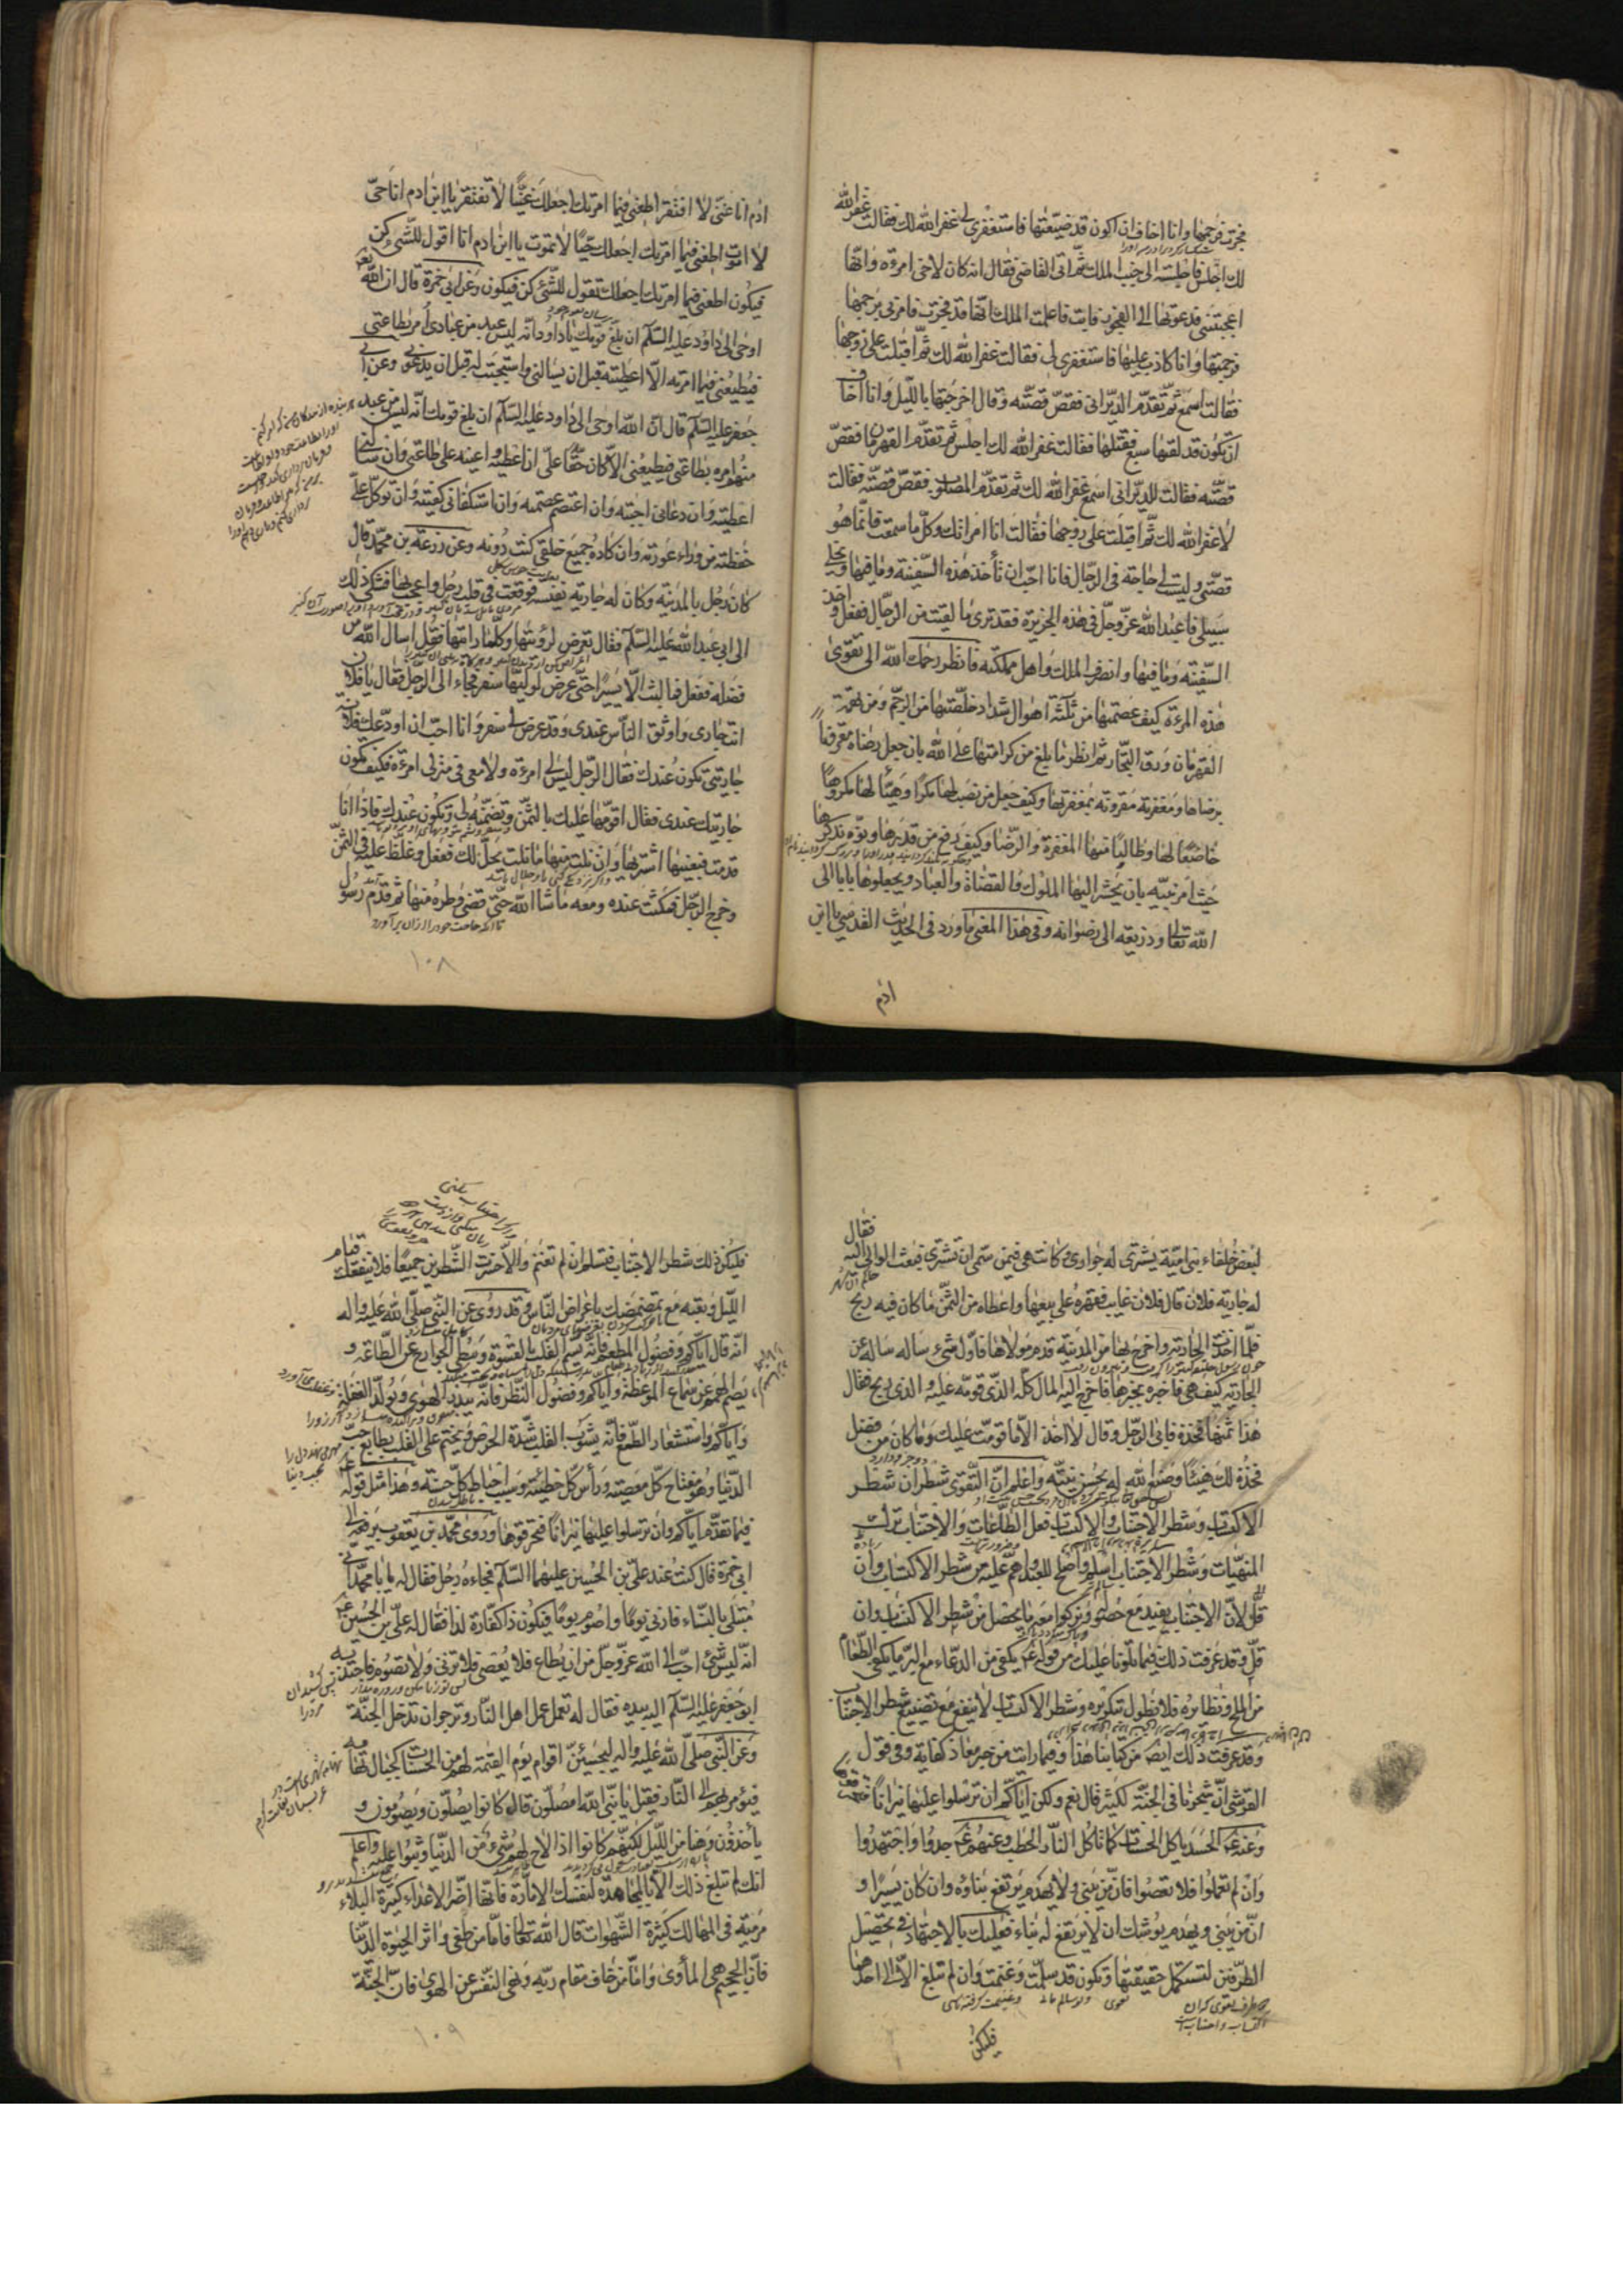 فجرت فرجمها وانا اخاف ان اكون قد ضيّعتها فاستغفري لي غفر الله لك فقالت غفر الله
لك اجلس فاجلسته الى جنب الملك ثمّ اتى القاضي فقال انه كان لاخي امرءة وانّها
اعجبتني فدعوتها الى الفجور فابت فاعلمت الملك انّها قد فجرت فامرني برجمها
فرجمتها وانا كاذب عليها فاستغفري لي فقالت غفر الله لك ثمّ اقبلت على زوجها
فقالت اسمع ثمّ تقدّم الديّراني فقصّ قصّته وقال اخرجتها بالليل وانا اخاف
ان تكون قد لقيها سبع فقتلها فقالت غفر الله لك اجلس ثم تقدّم القهرمان فقصّ
قصّته فقالت للديّراني اسمع غفر الله لك ثم تقدّم المصلوب فقصّ قصّته فقالت
لا غفر الله لك ثمّ اقبلت على زوجها فقالت انا امرأتك وكلّ ما سمعت فانّما هو
قصّتي وليست لي حاجة في الرّجال فانا احبّ ان تأخذ هذه السّفينة وما فيها وتخلّي
سبيلي فاعبد الله عزّ وجلّ في هذه الجزيرة فقد ترى ما لقيت من الرجال ففعل واخذ
السّفينة وما فيها وانصرف الملك واهل مملكته فانظر رحمك الله الى تقوى
هذه المرءة كيف عصمتها من ثلثة اهوال شداد خلّصتها من الرجم ومن تهمة
القهرمان ورق التجّار ثم انظر ما بلغ من كرامتها على الله بان جعل رضاه مقرونا
برضاها ومغفرته مقرونة بمغفرتها وكيف جعل من نصب لها مكرا وهيّأ لها مكروها
خاضعا لها وطالبا منها المغفرة والرّضا وكيف رفع من قدرها ونوّه بذكرها
حيث امر نبيّه بان يحشر اليها الملوك والقضاة والعباد ويجعلوها بابا الى
الله تعالى وذريعة الى رضوانه وفي هذا المعنى ما ورد في الحديث القدسي يا ابن
ادم
ادم انا غنيّ لا افتقر اطعني فيما امرتك اجعلك غنيّا لا تفتقر يا ابن ادم انا حيّ
لا اموت اطعني فيما امرتك اجعلك حيّا لا تموت يا ابن ادم انا اقول للشّيء كن
فيكون اطعني فيما امرتك اجعلك تقول للشّيء كن فيكون وعن ابي حمزة قال ان الله
اوحى الى داود عليه السّلام ان بلّغ قومك يا داود انّه ليس عبد من عبادي أمر بطاعتي
فيطيعني فيما امرته الّا اعطيته قبل ان يسألني واستجبت له قبل ان يدعوني وعن ابي
جعفر عليه السّلام قال انّ الله اوحى الى داود عليه السّلام ان بلغ قومك انّه ليس من عبد
منهم امره بطاعتي فيطيعني الّا كان حقّا عليّ ان اعطيه واعينه على طاعتي وان سألني
اعطيته وان دعاني اجبته وان اعتصم عصمته وان استكفاني كفيته وان توكّل عليّ
حفظته من وراء عورته وان كاده جميع خلقي كنت دونه وعن زرعة بن محمّد قال
كان رجل بالمدينة وكان له جارية نفيسة فوقعت في قلب رجل واعجب بها فشكى ذلك
الى ابي عبد الله عليه السّلام فقال تعرض لرؤيتها وكلّما رايتها فقل اسال الله من
فضله ففعل فما لبث الّا يسيرا حتّى عرض لوليّها سفر فجاء الى الرجل فقال يا فلان
انت جاري واوثق النّاس عندي وقد عرض لي سفر وانا احبّ ان اودعك فلانة
جاريتي تكون عندك فقال الرّجل ليس لي امرءة ولا معي في منزلي امرءة فكيف تكون
جاريتك عندي فقال اقوّمها عليك بالثّمن وتضمنه لي وتكون عندك فاذا انا
قدمت فبعنيها اشتريها وان نلت منها ما نلت يحلّ لك ففعل وغلظ عليه في الثّمن
وخرج الرّجل فمكثت عنده ومعه ما شاء الله حتّى قضى وطره منها ثم قدم رسول
١٠٨
لبعض خلفاء بني اميّة يشتري له جواري وكانت هي فيمن سمّي ان تشتري فبعث الوالي اليه فقال
له جارية فلان قال فلان غايب فقهره على بيعها واعطاه من الثّمن ما كان فيه ربح
فلمّا اخذت الجارية واخرج بها من المدينة قدم مولاها فاوّل شيء ساله ساله عن
الجارية كيف هي فاخبره بخبرها فاخرج اليه المال كلّه الذي قوّمه عليه والذي ربح فقال
هذا ثمنها فخذه فابى الرّجل وقال لا اخذ الّا ما قومّت عليك وما كان من فضل
فخذه لك هنيئا وصنع الله له بحسن نيّته واعلم انّ التّقوى شطران شطر
الاكتساب وشطر الاجتناب والاكتساب فعل الطّاعات والاجتناب ترك
المنهيّات وشطر الاجتناب اسلم واصلح للعبد واهمّ عليه من شطر الاكتساب وان
قلّ لانّ الاجتناب يفيد مع حصوله ويزكو معه ما يحصل من شطر الاكتساب وان
قلّ وقد عرفت ذلك فيما تلونا عليك من قوله يكفي من الدّعاء مع البرّ ما يكفي الطّعام
من الملح ونظايره فلا نطول بتكريره وشطر الاكتساب لا ينفع مع تضييع شطر الاجتناب
وقد عرفت ذلك ايضا من كتابنا هذا وفيما رايت من خبر معاذ كفاية وفي قول
القرشي انّ شجرنا في الجنّة لكثير قال نعم ولكن اياكم ان ترسلوا عليها نيرانا فتحرقوها
وعنه الحسد ياكل الحسنات كما تاكل النّار الحطب وعنهم جدوا واجتهدوا
وان لم تعملوا فلا تعصوا فانّ من يبني ولا يهدم يرتفع بناؤه وان كان يسيرا و
انّ من يبني ويهدم يوشك ان لا يرتفع له بناء فعليك بالاجتهاد في تحصيل
الطّرفين لتستكمل حقيقتها وتكون قد سلمت وغنمت وان لم تبلغ الّا الى احدهما
فليكن
فليكن ذلك شطر الاجتناب فتسلم ان لم تغنم والّا خسرت الشّطرين جميعا فلا ينفعك قيام
الليل وتعبه مع تمضمضك باعراض النّاس وقد روي عن النّبي صلّى الله عليه واله
انّه قال ايّاكم وفضول المطعم فانّه يسم القلب بالقسوة ويبطئ الجوارح عن الطّاعة و
يصم الهمم عن سماع الموعظة واياكم وفضول النّظر فانّه يبدر الهوى ويولّد الغفلة
وايّاكم واستشعار الطّمع فانّه يشوب القلب شدّة الحرص ويختم على القلب بطابع حبّ
الدّنيا وهو مفتاح كلّ معصية ورأس كلّ خطيئة وسبب احباط كلّ حسنة وهذا مثل قوله
فيما تقدّم ايّاكم وان ترسلوا عليها نيرانا فتحرقوها وروى محمّد بن يعقوب يرفعه الى
ابي حمزة قال كنت عند عليّ بن الحسين عليهما السّلام فجاءه رجل فقال له يا ابا محمّد انّي
مبتلى بالنّساء فازني يوما واصوم يوما فيكون ذا كفّارة لذا فقال له عليّ بن الحسين
انّه ليس شيء احبّ الى الله عزّ وجلّ من ان يطاع فلا يعصى فلا تزني ولا تصوم فاجتذبه
ابو جعفر عليه السّلام اليه بيده فقال له تعمل عمل اهل النّار وترجو ان تدخل الجنّة
وعن النّبي صلّى الله عليه واله ليجيئنّ اقوام يوم القيمة لهم من الحسنات كجبال تهامة
فيؤمر بهم الى النّار فقيل يا نبيّ الله امصلّون قال كانوا يصلّون ويصومون و
يأخذون وهنا من الليل لكنّهم كانوا اذا لاح لهم شيء من الدّنيا وثبوا عليه واعلم
انّك لم تبلغ ذلك الّا بالمجاهدة لنفسك الامّارة فانّها اضرّ الاعداء كثيرة البلاء
مرمية في المهالك كثيرة الشّهوات قال الله تعالى فامّا من طغى واثر الحيوة الدّنيا
فانّ الجحيم هي المأوى وامّا من خاف مقام ربّه ونهى النّفس عن الهوى فانّ الجنّة
١٠٩